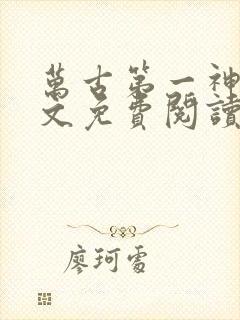 萬古第一神
文免費閱讀
廖珂雪